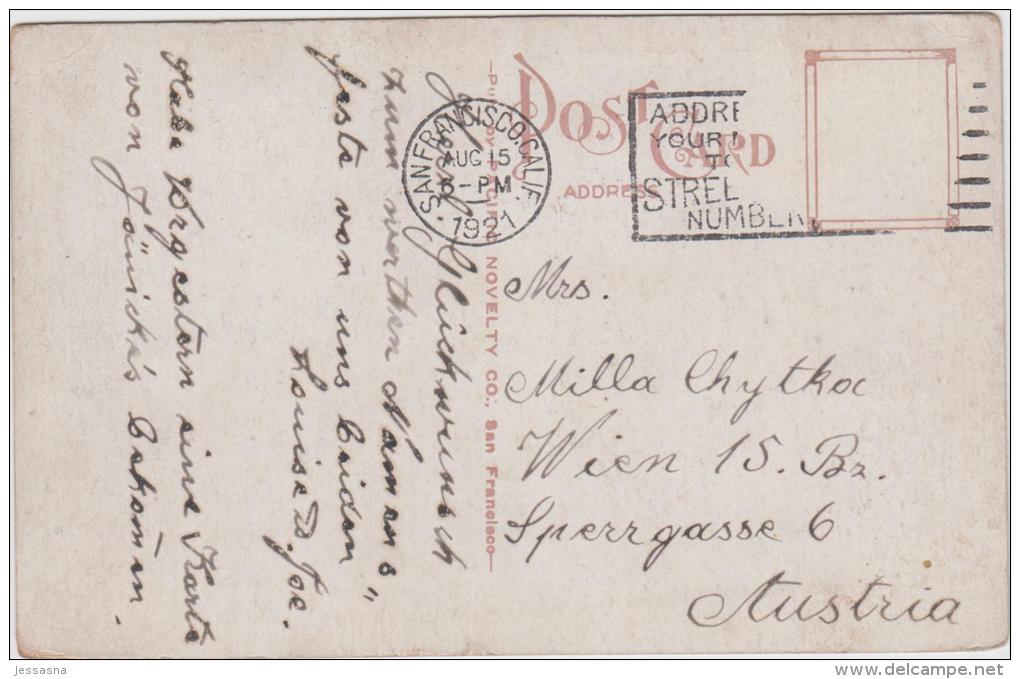 POST CARD
ADDRESS
SAN FRANCISCO, CALIF.
AUG 15
6-PM
1921
ADDRE
YOUR
TO
STREE
NUMBER
PACIFIC NOVELTY CO., San Francisco
Mrs.
Milla Chytka
Wien 15. Bz.
Sperrgasse 6
Austria
Glückwunsch
zum werthen Namens"
feste von uns beiden
Louise & Joe.
Habe Vorgestern eine Karte
von Jänicke's bekom̅en.
jessasna
www.delcampe.net